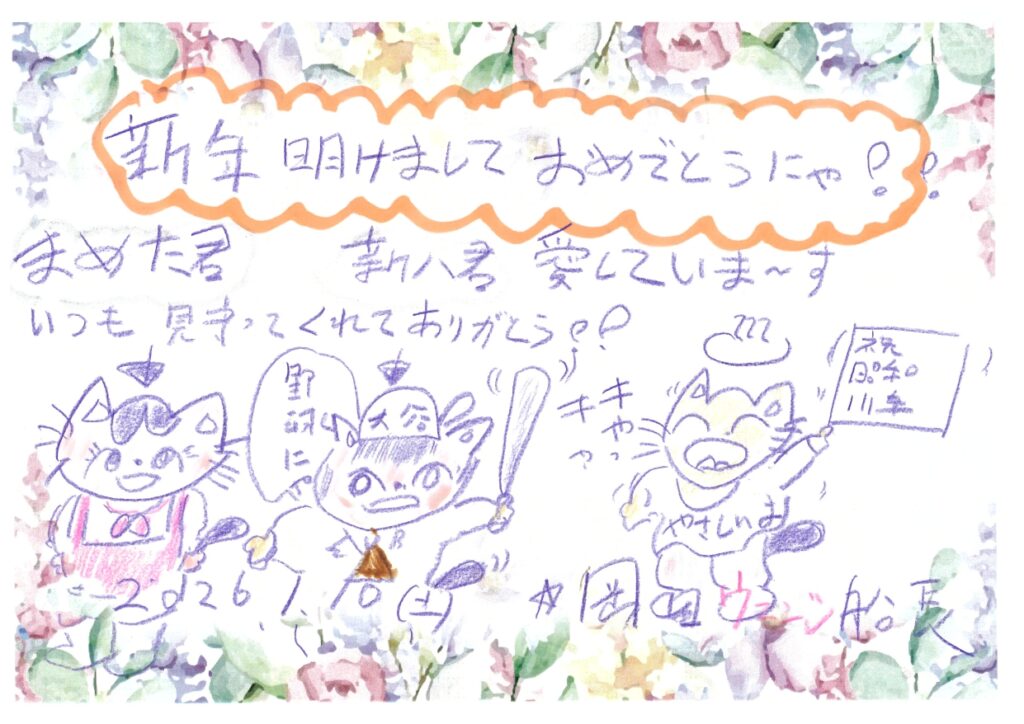 新年 明けまして おめでとうにゃ!!
まめた君 新八君 愛していま〜す
いつも 見守ってくれてありがとう!!
野球にゃ
大谷
キャッ
キャッ
祝
昭和
川
やさしいお
2026.1.10(土)
☆岡田ウージン船長